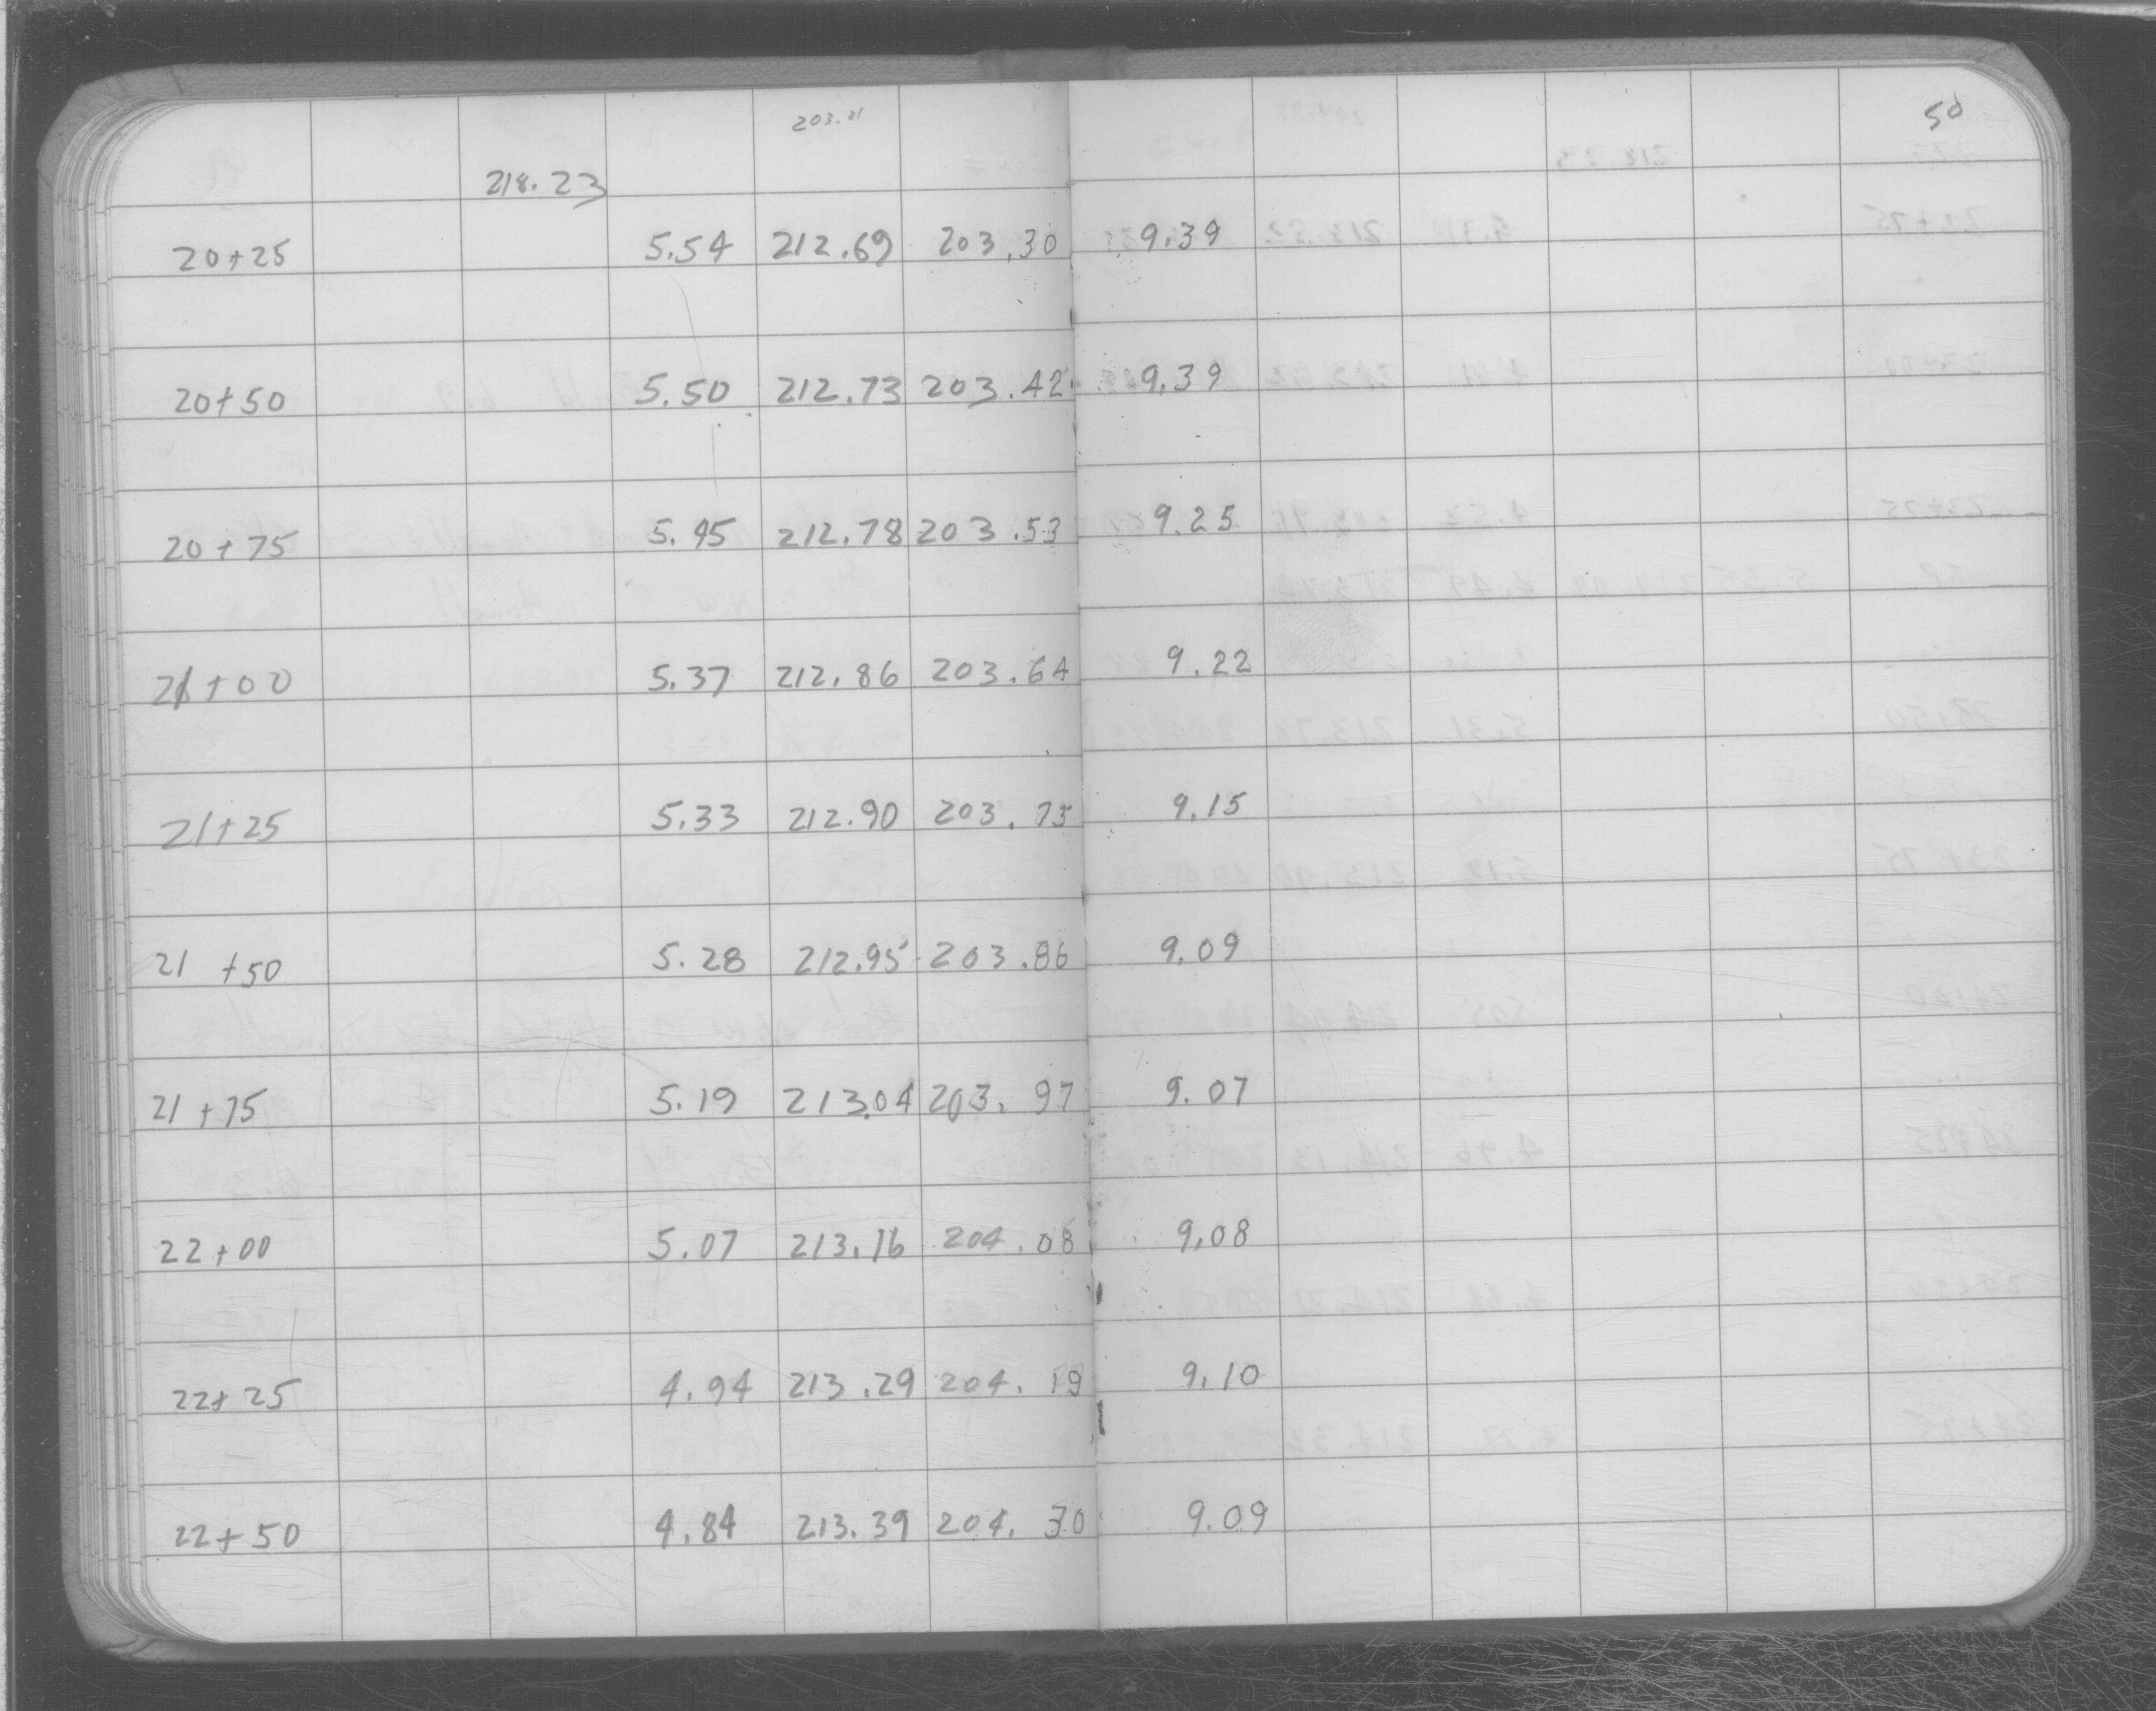 203.21
50
218.23
20+25 5.54 212.69 203.30 9.39
20+50 5.50 212.73 203.42 9.39
20+75 5.45 212.78 203.53 9.25
21+00 5.37 212.86 203.64 9.22
21+25 5.33 212.90 203.75 9.15
21+50 5.28 212.95 203.86 9.09
21+75 5.19 213.04 203.97 9.07
22+00 5.07 213.16 204.08 9.08
22+25 4.94 213.29 204.19 9.10
22+50 4.84 213.39 204.30 9.09